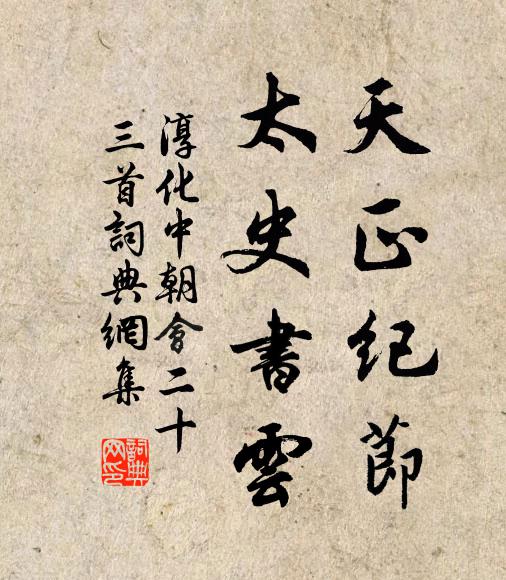 天正纪節
太史書雲
淳化中朝會二十
三首詞典網集
詞典
网印